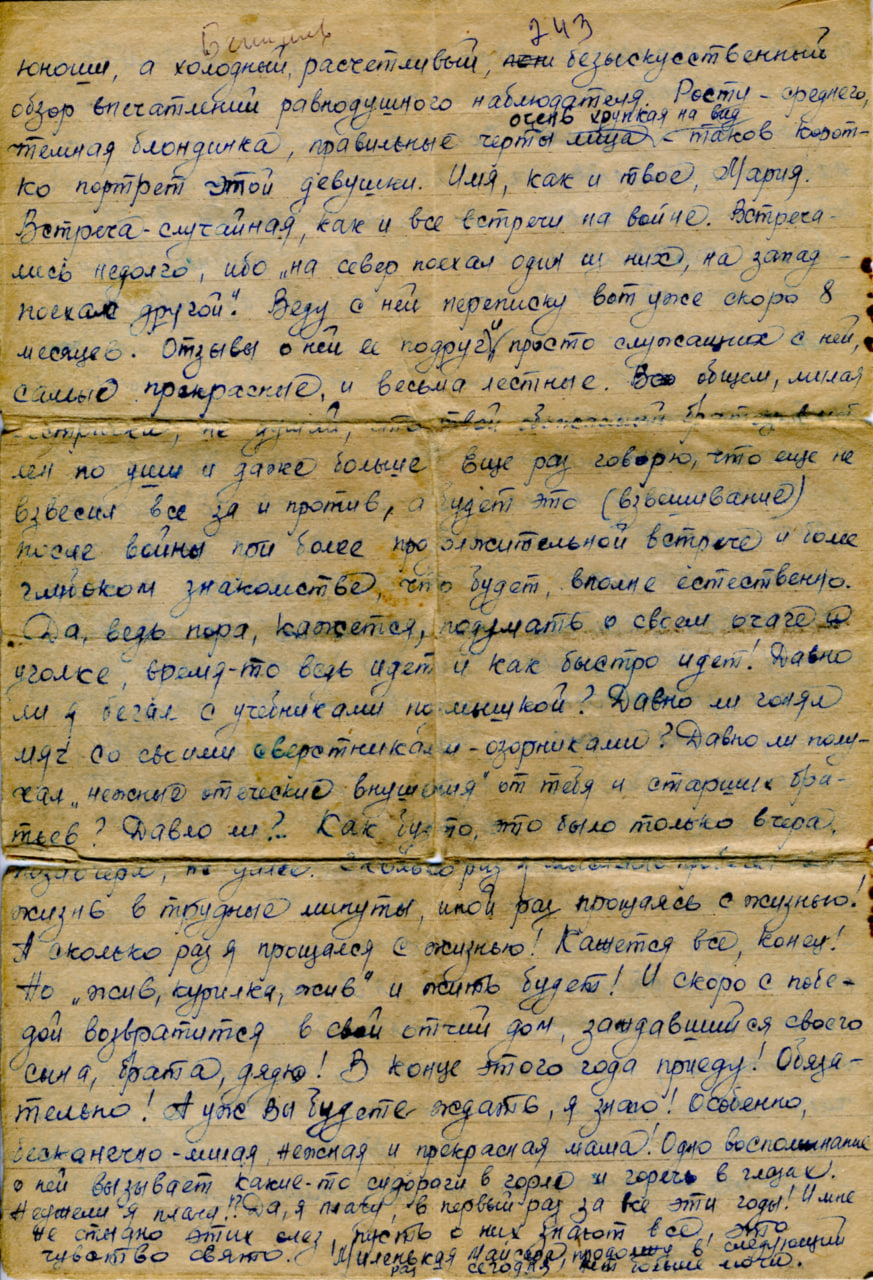 743
юноши, а холодный, расчетливый, безыскусственный
обзор впечатлений равнодушного наблюдателя. Росту – среднего,
очень хрупкая на вид
темная блондинка, правильные черты лица – таков корот-
ко портрет этой девушки. Имя, как и твое, Мария.
Встреча – случайная, как и все встречи на войне. Встреча-
лись недолго, ибо „на север поехал один из них, на запад –
поехал другой". Веду с ней переписку вот уже скоро 8
месяцев. Отзывы о ней ее подруг, просто служащих с ней,
самые прекрасные, и весьма лестные. В общем, милая
сестричка, не думай, что твой
лен по уши и даже больше Еще раз говорю, что еще не
взвесил все за и против, а будет это (взвешивание)
после войны при более продолжительной встрече и более
глубоком знакомстве, что будет, вполне естественно.
Да, ведь пора, кажется, подумать о своем очаге
уголке, время-то ведь идет и как быстро идет! Давно
ли я бегал с учебниками под мышкой? Давно ли гонял
мяч со своими сверстниками-озорниками? Давно ли полу-
чал „нежные отеческие внушения" от тебя и старших бра-
тьев? Давно ли?.. Как будто, это было только вчера,
позавчера, не далее. Сколько раз я
жизнь в трудные минуты, иной раз прощаясь с жизнью!
А сколько раз я прощался с жизнью! Кажется все, конец!
Но „жив, курилка, жив" и жить будет! И скоро с побе-
дой возвратится в свой отчий дом, заждавшийся своего
сына, брата, дядю! В конце этого года приеду! Обяза-
тельно! А уж вы будете ждать, я знаю! Особенно,
бесконечно-милая, нежная и прекрасная мама! Одно воспоминание
о ней вызывает какие-то судороги в горле и горечь в глазах.
Неужели я плачу!? Да, я плачу, в первый раз за все эти годы! И мне
не стыдно этих слез, пусть о них знают все это
чувство свято. Миленькая Майсара, продолжу в следующий
раз сегодня нет больше мочи.